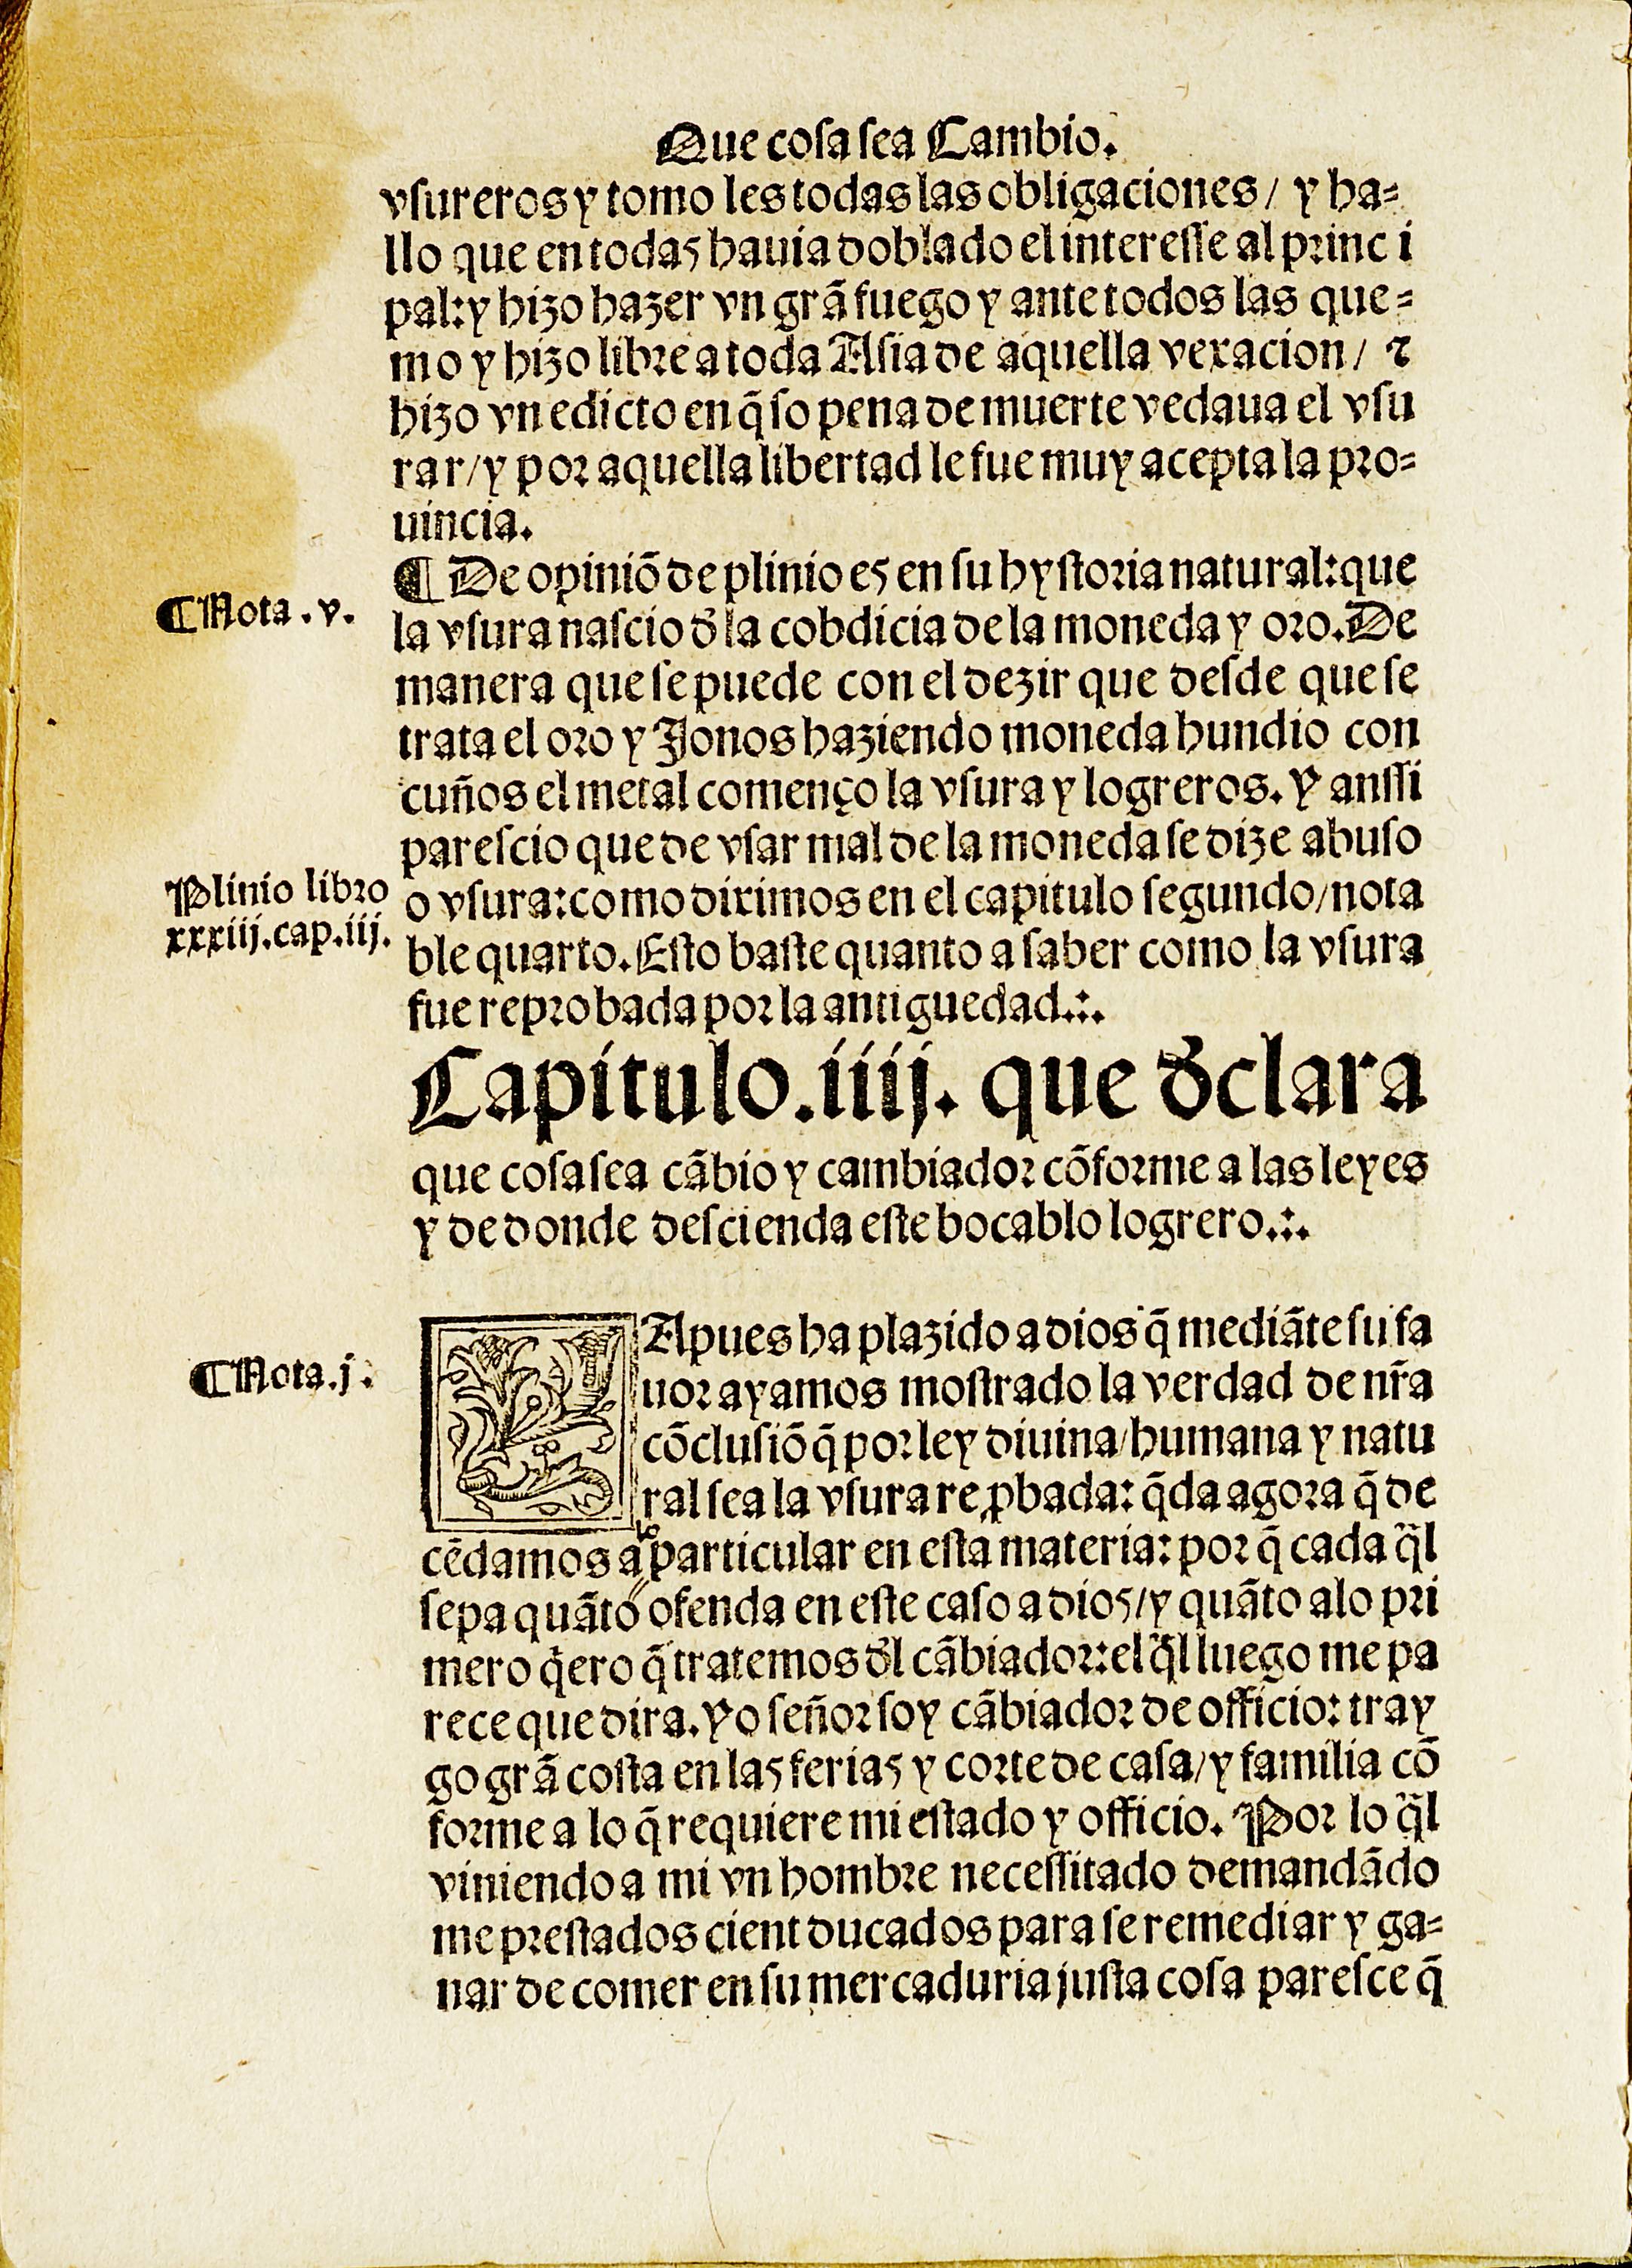 Que cosa sea Cambio.
vsureros y tomo les todas las obligaciones / y ha-
llo que en todas hauia doblado el interesse al princ i
pal: y hizo hazer vn grã fuego y ante todos las que-
mo y hizo libre a toda Asia de aquella vexacion / ⁊
hizo vn edicto en q̃ so pena de muerte vedaua el vsu
rar / y por aquella libertad le fue muy acepta la pro-
uincia.
¶ De opiniõ de plinio es en su hystoria natural: que
¶ Nota .v.
la vsura nascio d̃ la cobdicia de la moneda y oro. De
manera que se puede con el dezir que desde que se
trata el oro y Jonos haziendo moneda hundio con
cuños el metal començo la vsura y logreros. Y anssi
parescio que de vsar mal de la moneda se dize abuso
Plinio libro
xxxiij. cap. iij.
o vsura: como diximos en el capitulo segundo / nota
ble quarto. Esto baste quanto a saber como la vsura
fue reprobada por la antiguedad .:.
Capitulo .iiij. que d̃clara
que cosa sea cãbio y cambiador cõforme a las leyes
y de donde descienda este bocablo logrero .:.
¶ Nota .j.
YA pues ha plazido a dios q̃ mediãte su fa
uor ayamos mostrado la verdad de nr̃a
cõclusiõ q̃ por ley diuina / humana y natu
ral sea la vsura re ꝓbada: q̃da agora q̃ de
cẽdamos a lo particular en esta materia: por q̃ cada q̃l
sepa quãto ofenda en este caso a dios / y quãto a lo pri
mero q̃ero q̃ tratemos d̃l cãbiador: el q̃l luego me pa
rece que dira. Yo señor soy cãbiador de officio: tray
go grã costa en las ferias y corte de casa / y familia cõ
forme a lo q̃ requiere mi estado y officio. Por lo q̃l
viniendo a mi vn hombre necessitado demandãdo
me prestados cient ducados para se remediar y ga-
nar de comer en su mercaduria justa cosa paresce q̃